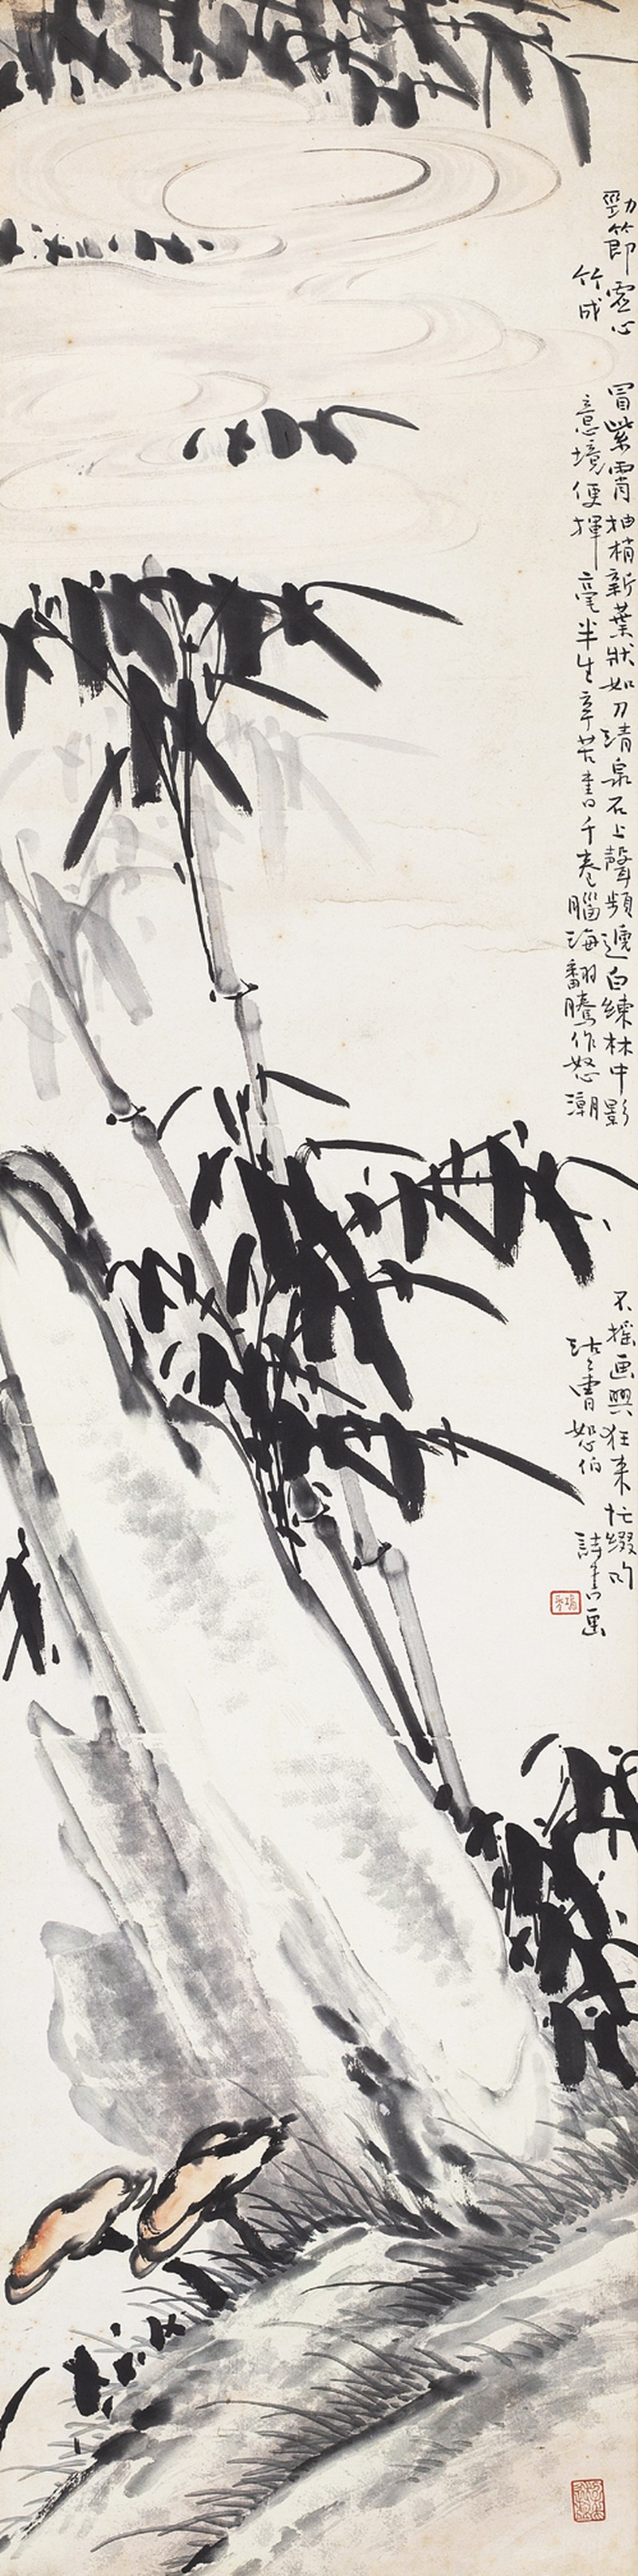 勁節虛心冒紫霄抽梢新葉狀如刀清泉石上聲頻遞白練林中影不搖画興狂来忙綴句
竹成意境便揮毫半生辛苦書千卷腦海翻騰作怒潮沽上曹恕伯詩書画